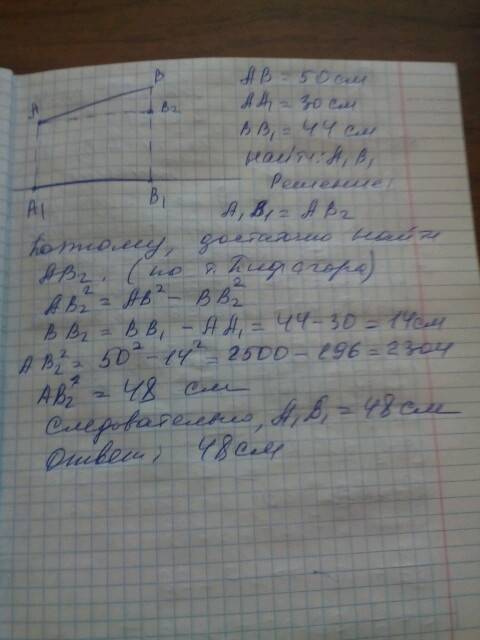 B
A
B₂
A₁
B₁
AB = 50 см
AA₁ = 30 см
BB₁ = 44 см
Найти: A₁B₁
Решение:
A₁B₁ = AB₂
Поэтому, достаточно найти
AB₂. (по т. Пифагора)
AB₂² = AB² - BB₂²
BB₂ = BB₁ - AA₁ = 44 - 30 = 14 см
AB₂² = 50² - 14² = 2500 - 196 = 2304
AB₂² = 48 см
Следовательно, A₁B₁ = 48 см
Ответ: 48 см